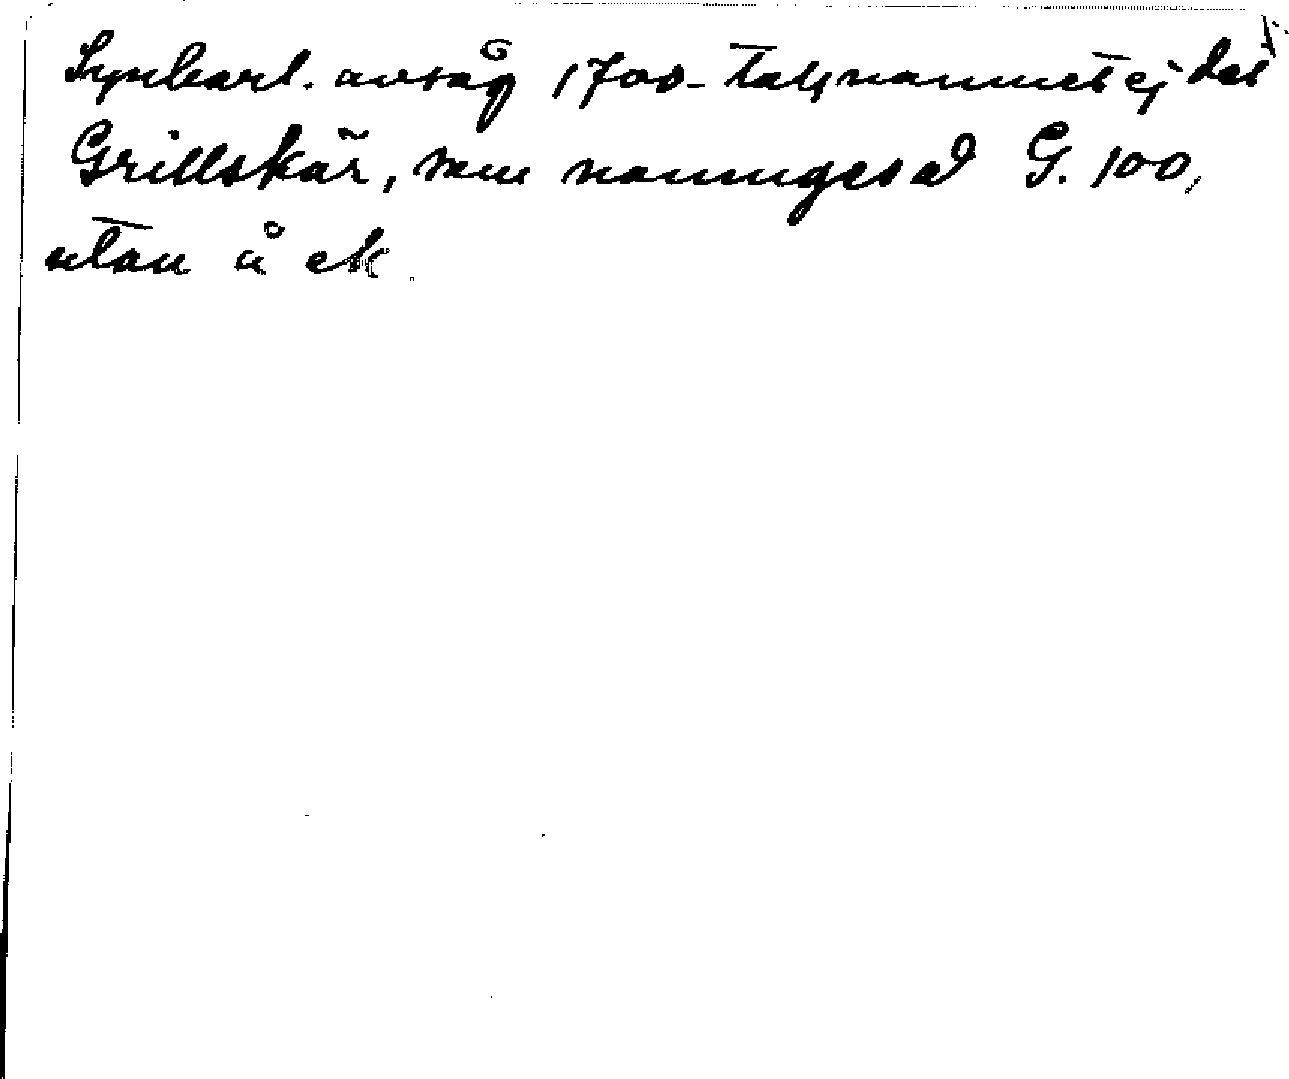 Synbarl. avsåg 1700-talsnamnet ej det
Grillskär, som namnges å G. 100,
utan å ek.